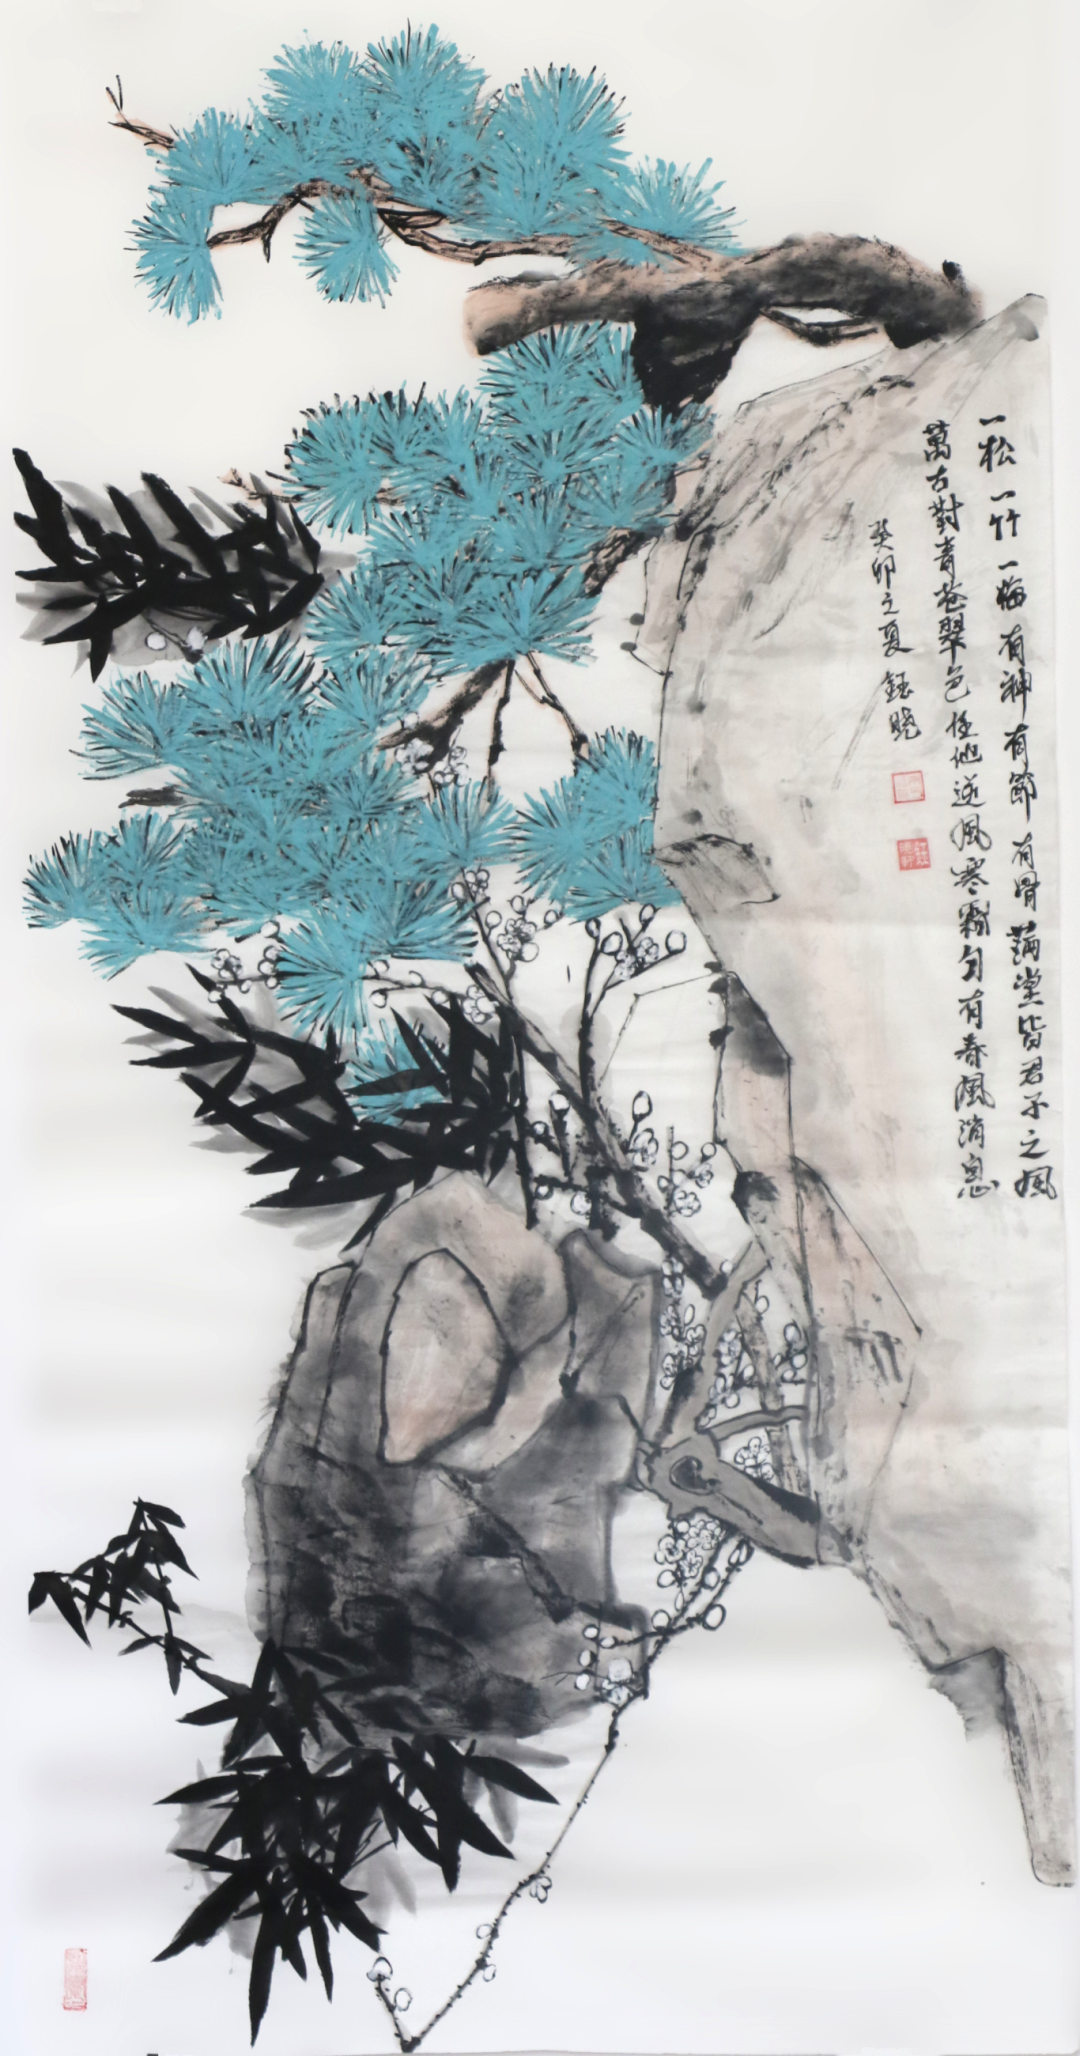 一松一竹一梅有神有節有骨滿堂皆君子之風
萬古對青蒼翠色任他逆風寒霜自有春風消息
癸卯之夏 鈺曉